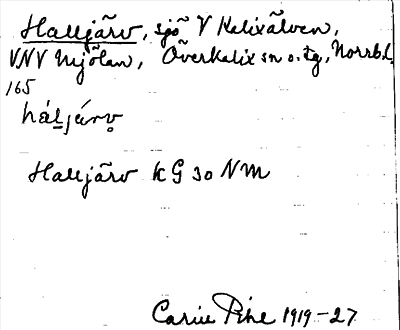 Halljärv, sjö V Kalixälven,
VNV Mjölan, Överkalix sn o. tg, Norrb.l.
165
hál̲járv̥
Halljärv KG 30 NM
Carin Pihl 1919-27